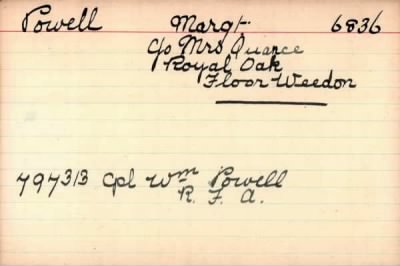 Powell Margt 6836
c/o Mrs Quance
Royal Oak
Floor Weedon
797313 Cpl Wm Powell
R. F. A.